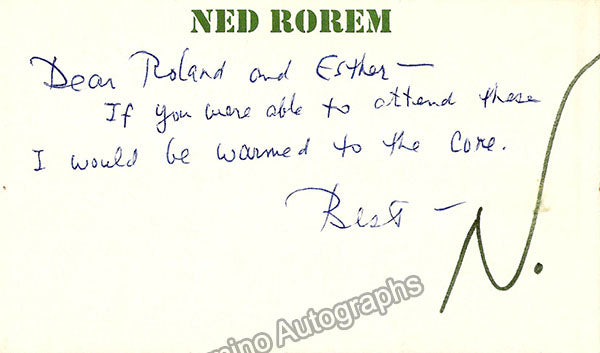 NED ROREM
Dear Roland and Esther—
If you were able to attend these
I would be warmed to the core.
Best —
N.
mino Autographs